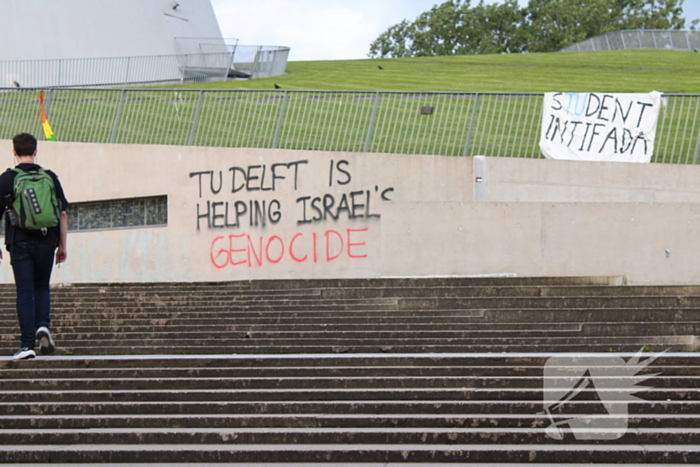 TU DELFT IS
HELPING ISRAEL'S
GENOCIDE
STUDENT
INTIFADA